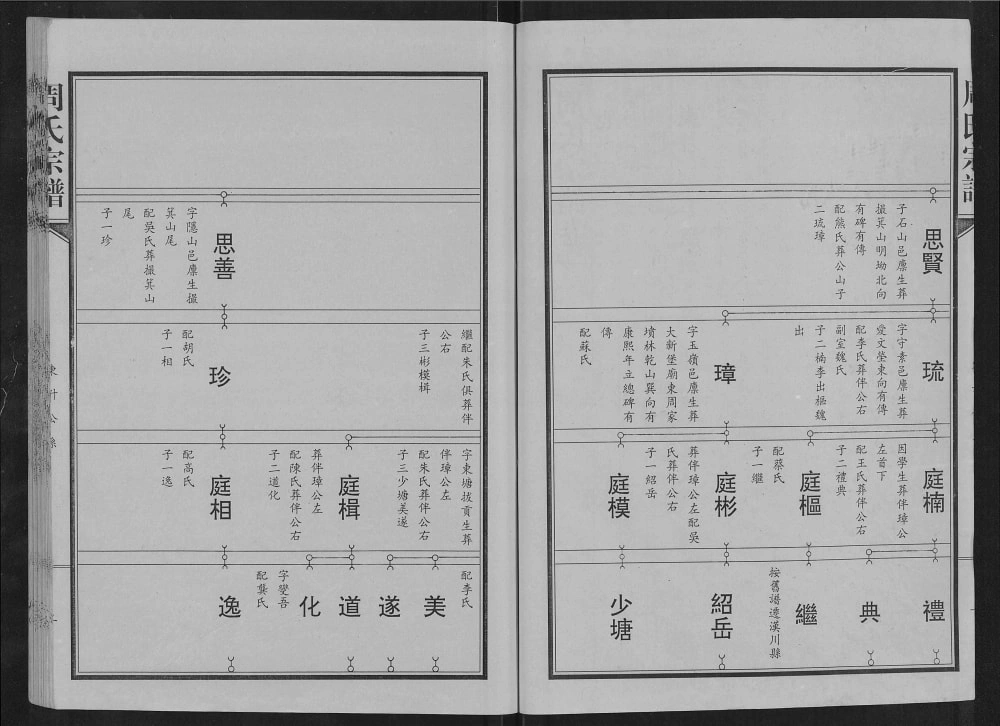 周氏宗譜
思賢
子石山邑廩生葬
撮箕山明坳北向
有碑有傳
配熊氏葬公山子
二琉璋
琉
字守素邑廩生葬
愛文塋東向有傳
配李氏葬伴公右
副室魏氏
子二楠李出樞魏
出
璋
字玉嶺邑廩生葬
大新堡廟東周家
墳林乾山巽向有
康熙年立總碑有
傳
配蘇氏
庭楠
因學生葬伴璋公
左首下
配王氏葬伴公右
子二禮典
庭樞
配蔡氏
子一繼
庭彬
葬伴璋公左配吳
氏葬伴公右
子一紹岳
庭模
禮
典
繼
按舊譜遷漢川縣
紹岳
少塘
周氏宗譜
思善
字隱山邑廩生撮
箕山尾
配吳氏葬撮箕山
尾
子一珍
繼配朱氏俱葬伴
公右
子三彬模楫
珍
配胡氏
子一相
字東塘拔貢生葬
伴璋公左
配朱氏葬伴公右
子三少塘美遂
庭楫
葬伴璋公左
配陳氏葬伴公右
子二道化
庭相
配高氏
子一逸
配李氏
美
遂
道
化
字燮吾
配龔氏
逸